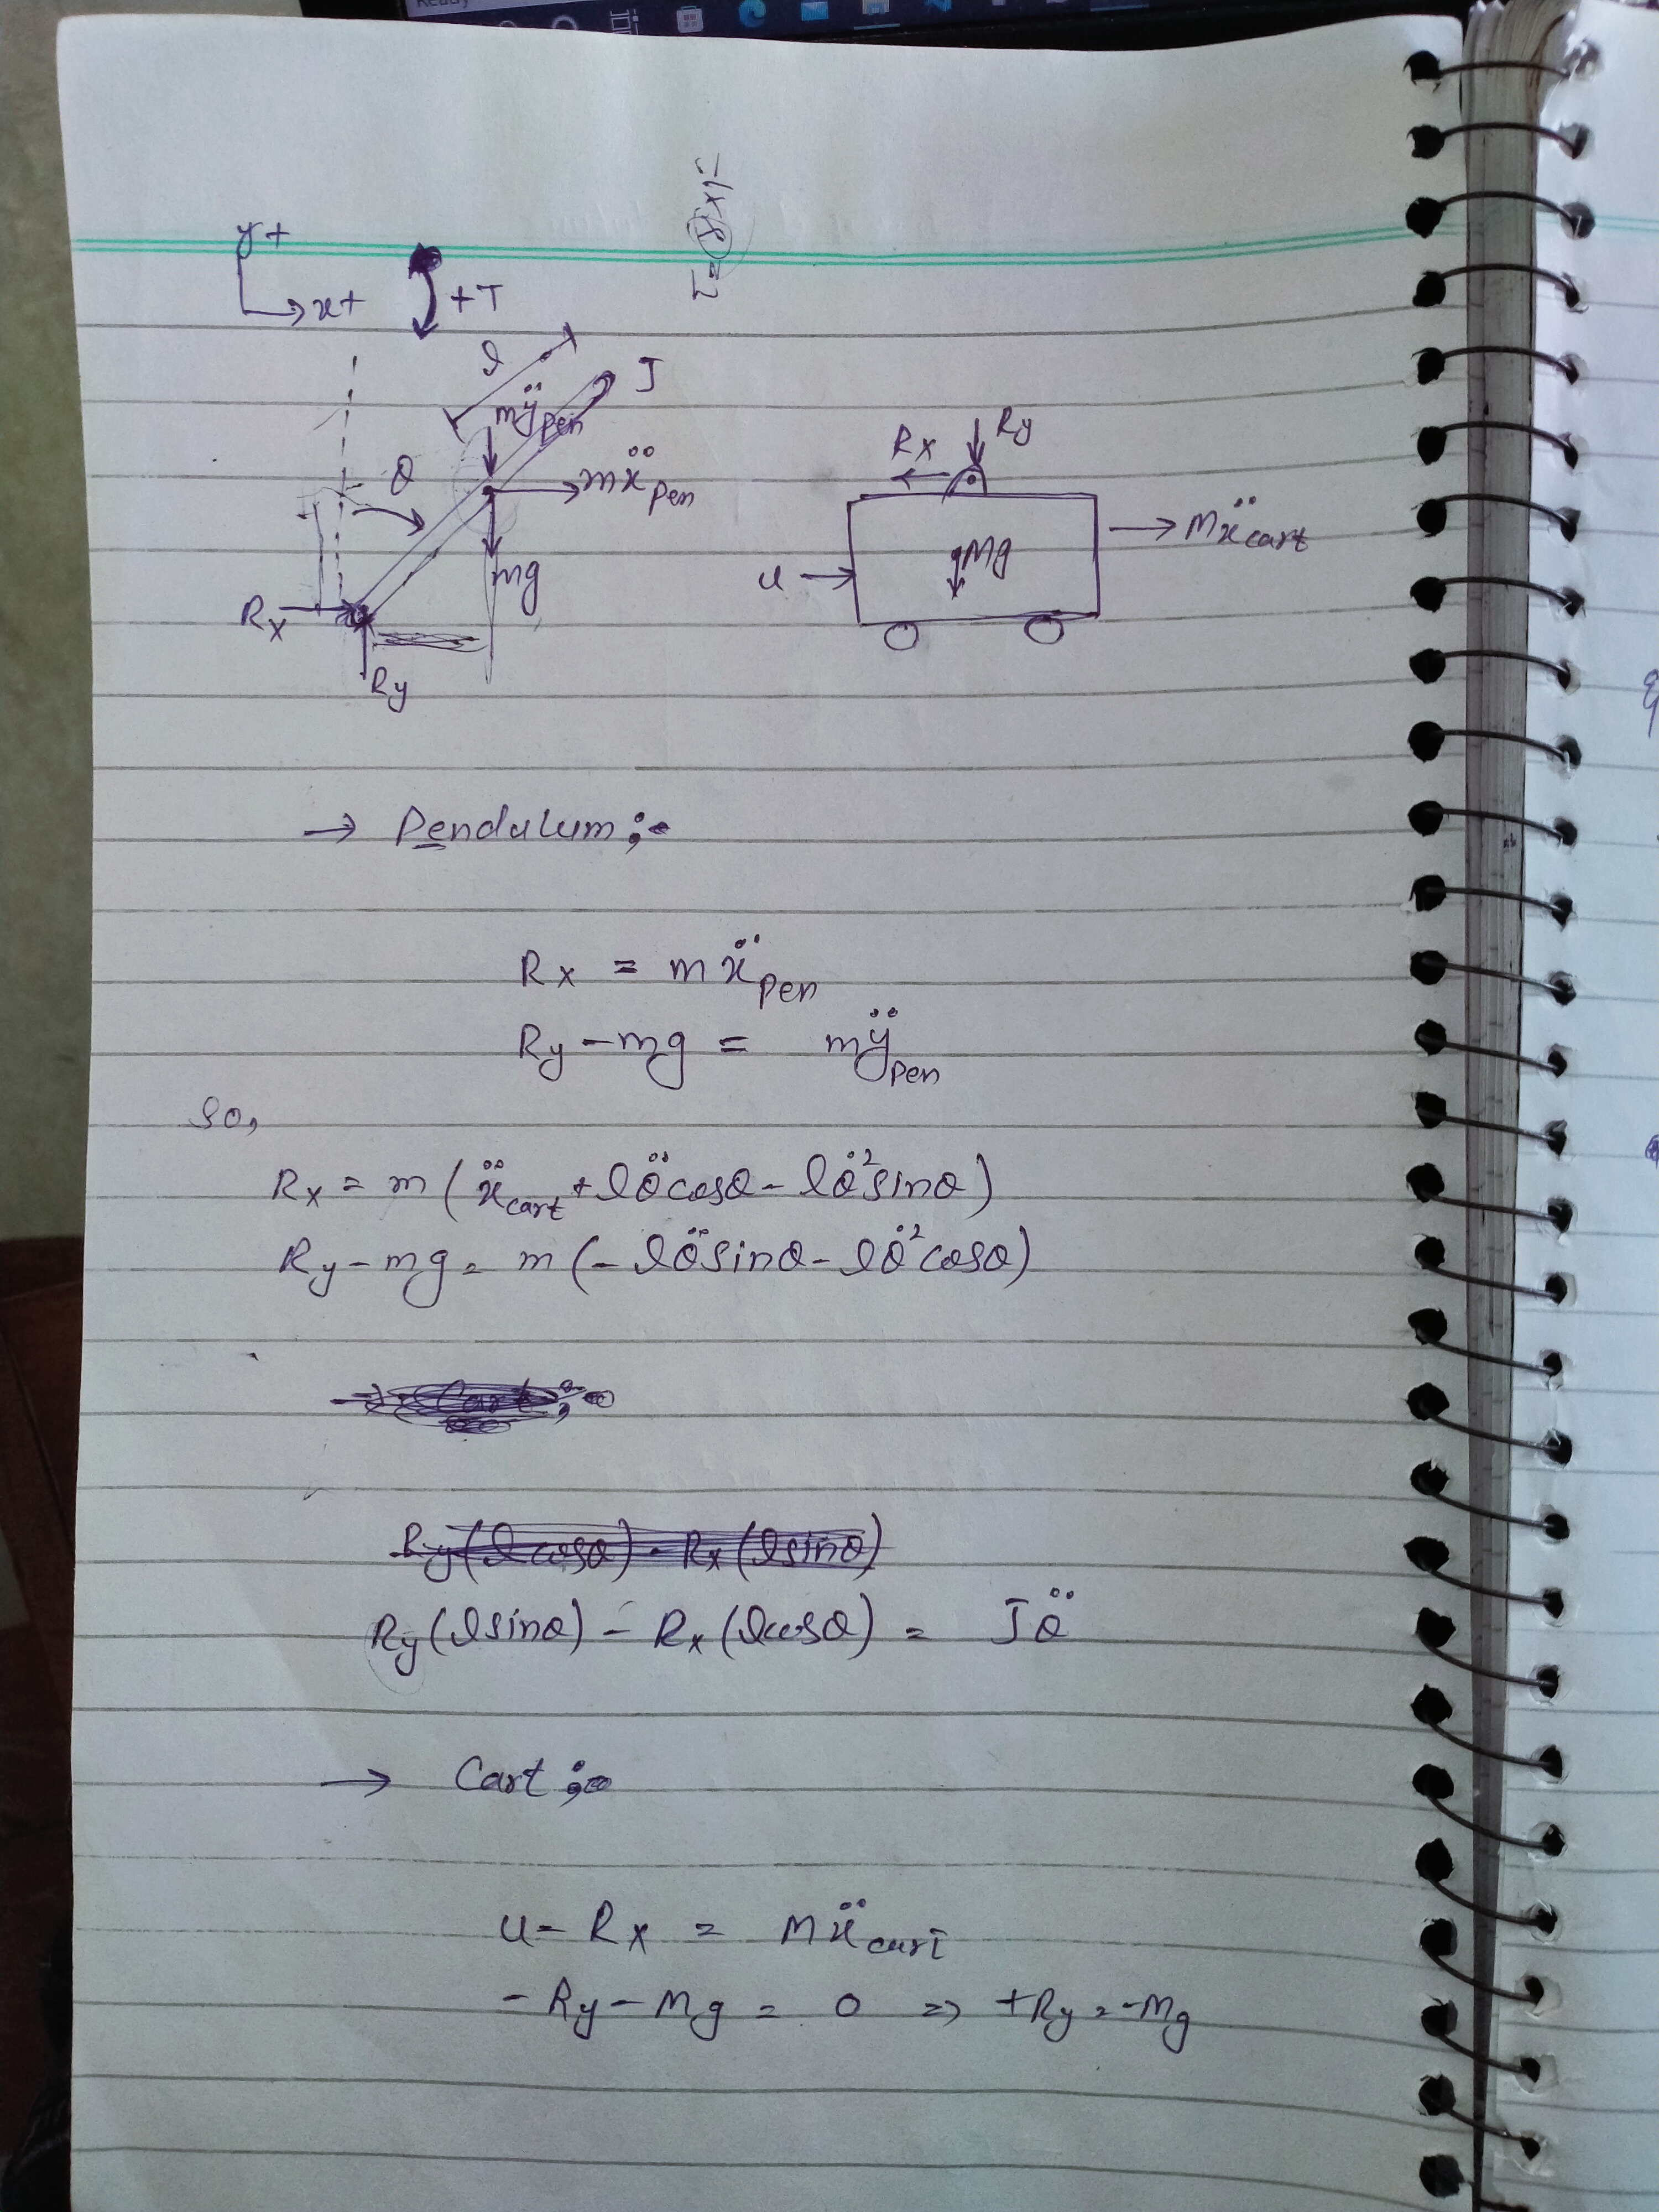 Ready
τ = r × F
y+
x+
+T
l
J
mÿpen
θ
mẍpen
mg
Rx
Ry
Rx
Ry
Mẍcart
Mg
u
→ Pendulum :-
Rx = mẍpen
Ry - mg = mÿpen
So,
Rx = m(ẍcart + lθ̈cosθ - lθ̇²sinθ)
Ry - mg = m(-lθ̈sinθ - lθ̇²cosθ)
→ Cart :-
Ry(lcosθ) - Rx(lsinθ)
Ry(lsinθ) - Rx(lcosθ) = Jθ̈
→ Cart :-
u - Rx = Mẍcart
-Ry - Mg = 0 ⇒ +Ry = -Mg